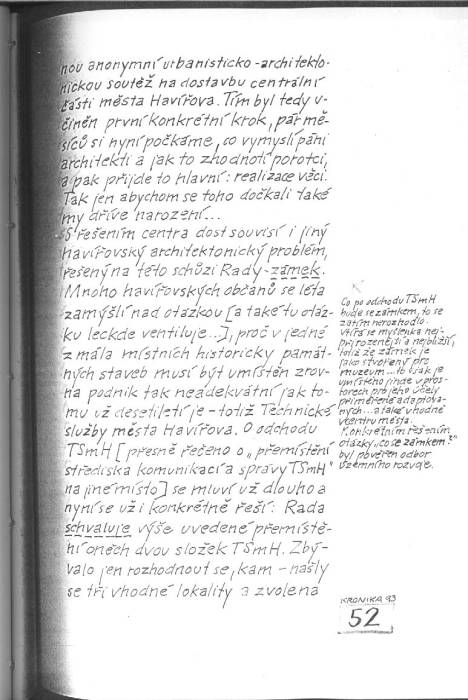 nou anonymní urbanisticko-architekto-
nickou soutěž na dostavbu centrální
části města Havířova. Tím byl tedy u-
činěn první konkrétní krok, pár mě-
síců si nyní počkáme, co vymyslí páni
architekti a jak to zhodnotí porotci,
a pak přijde to hlavní: realizace věci.
Tak jen abychom se toho dočkali také
my dříve narození...
S řešením centra dost souvisí i jiný
havířovský architektonický problém,
řešený na této schůzi Rady - zámek.
Mnoho havířovských občanů se léta
zamýšlí nad otázkou [a také tu otáz-
ku leckde ventiluje...], proč v jedné
z mála místních historicky památ-
ných staveb musí být umístěn zrov-
na podnik tak neadekvátní jak to-
mu už desetiletí je - totiž Technické
služby města Havířova. O odchodu
TSmH [přesně řečeno o „přemístění
střediska komunikací a správy TSmH"
na jiné místo] se mluví už dlouho a
nyní se už i konkrétně řeší: Rada
schvaluje výše uvedené přemístě-
ní oněch dvou složek TSmH. Zbý-
valo jen rozhodnout se, kam - našly
se tři vhodné lokality a zvolena
Co po odchodu TSmH
bude se zámkem, to se
zatím nerozhodlo.
Vtírá se myšlenka nej-
přirozenější a nejbližší,
totiž že zámek je
jako stvořený pro
muzeum... to však je
umístěno jinde v pros-
torech pro jeho účely
přiměřeně adaptova-
ných... a také vhodně
v centru města.
Konkrétním řešením
otázky „co se zámkem?"
byl pověřen odbor
územního rozvoje.
KRONIKA 93
52